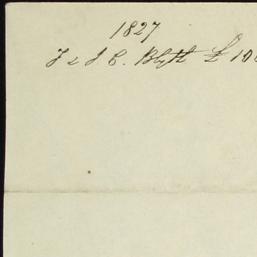 1827
J & J C. Blyth £ 10